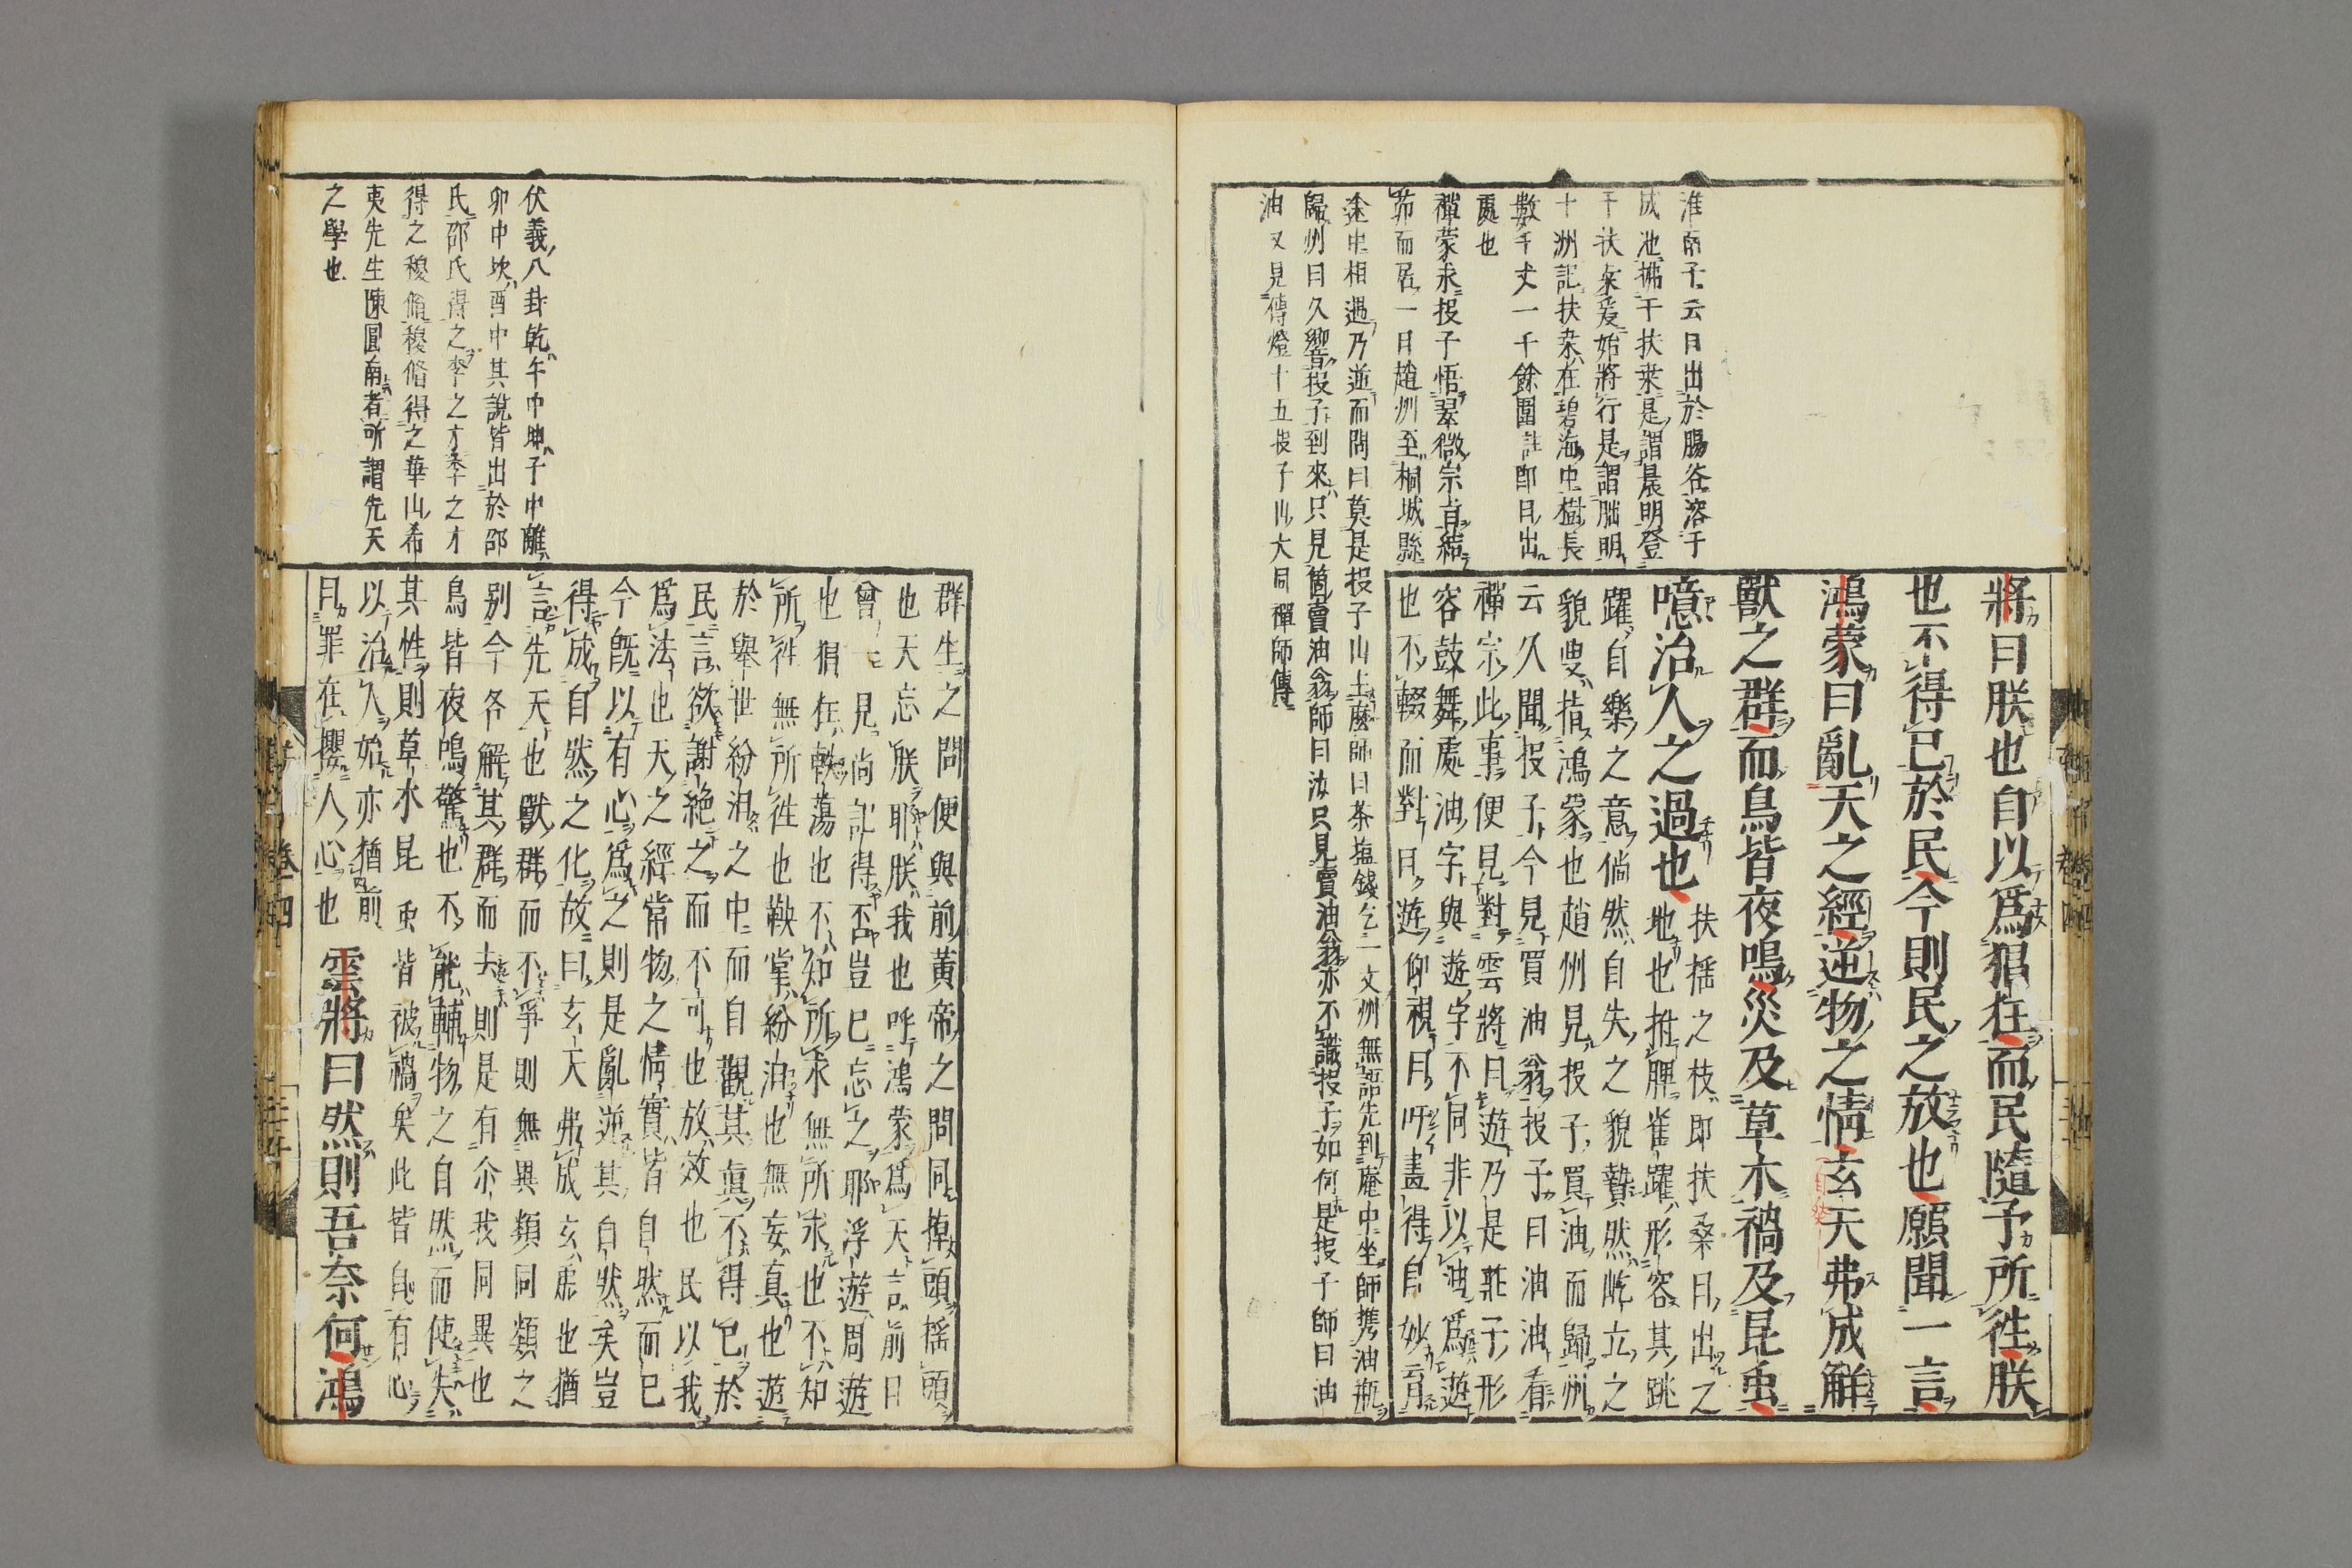 將曰朕也自以爲猖狂而民隨予所徃朕
也不得已於民今則民之放也願聞一言
鴻蒙曰亂天之經逆物之情玄天弗成解
獸之群而鳥皆夜鳴災及草木禍及昆虫
噫治人之過也
扶揺之枝即扶桑日出之
地也拊脾雀躍形容其跳
躍自樂之意倘然自失之貌贄然屹立之
貌叟指鴻蒙也趙州見投子買油而歸州
云久聞投子今見買油翁投子曰油油看
禪宗此事便見對雲將曰遊乃是莊子形
容鼓舞處油字與遊字不同非以油爲遊
也不輟而對曰遊仰視曰吁畫得自妙言
淮南子云日出於暘谷溶于
咸池拂于扶桒是謂晨明登
于扶桒爰始將行是謂朏明
十洲記扶桒在碧海中樹長
數千丈一千餘圍註即日出
處也
禪蒙求投子悟翠微宗旨結
茆而居一日趙州至桐城縣
途中相遇乃逆而問曰莫是投子山主麼師曰茶塩錢乞一文州無語先到庵中坐師携油瓶
歸州曰久嚮投子到來只見箇賣油翁師曰汝只見賣油翁亦不識投子如何是投子師曰油
油又見傳燈十五投子山大同禪師傳
群生之問便與前黄帝之問同掉頭揺頭
也天忘朕耶朕我也呼鴻蒙爲天言前日
曾見尚記得否豈已忘之耶浮遊周遊
也猖狂軼蕩也不知所求無所求也不知
所徃無所徃也鞅掌紛汨也無妄真也遊
於舉世紛汨之中而自觀其真不得已於
民言欲謝絶之而不可也放效也民以我
爲法也天之經常物之情實皆自然而已
今既以有心爲之則是亂逆其自然矣豈
得成自然之化故曰玄天弗成玄虚也猶
言先天也獸群而不爭則無異類同類之
别今各解其群而去則是有尒我同異也
鳥皆夜鳴驚也不能輔物之自然而使失
其性則草水昆虫皆被禍矣此皆自有心
以治人始亦猶前
曰罪在攖人心也
雲將曰然則吾奈何鴻
伏羲八卦乾午中坤子中離
卯中坎酉中其說皆出於邵
氏邵氏得之李之才李之才
得之穆脩穆脩得之華山希
夷先生陳圖南者所謂先天
之學也
卷四